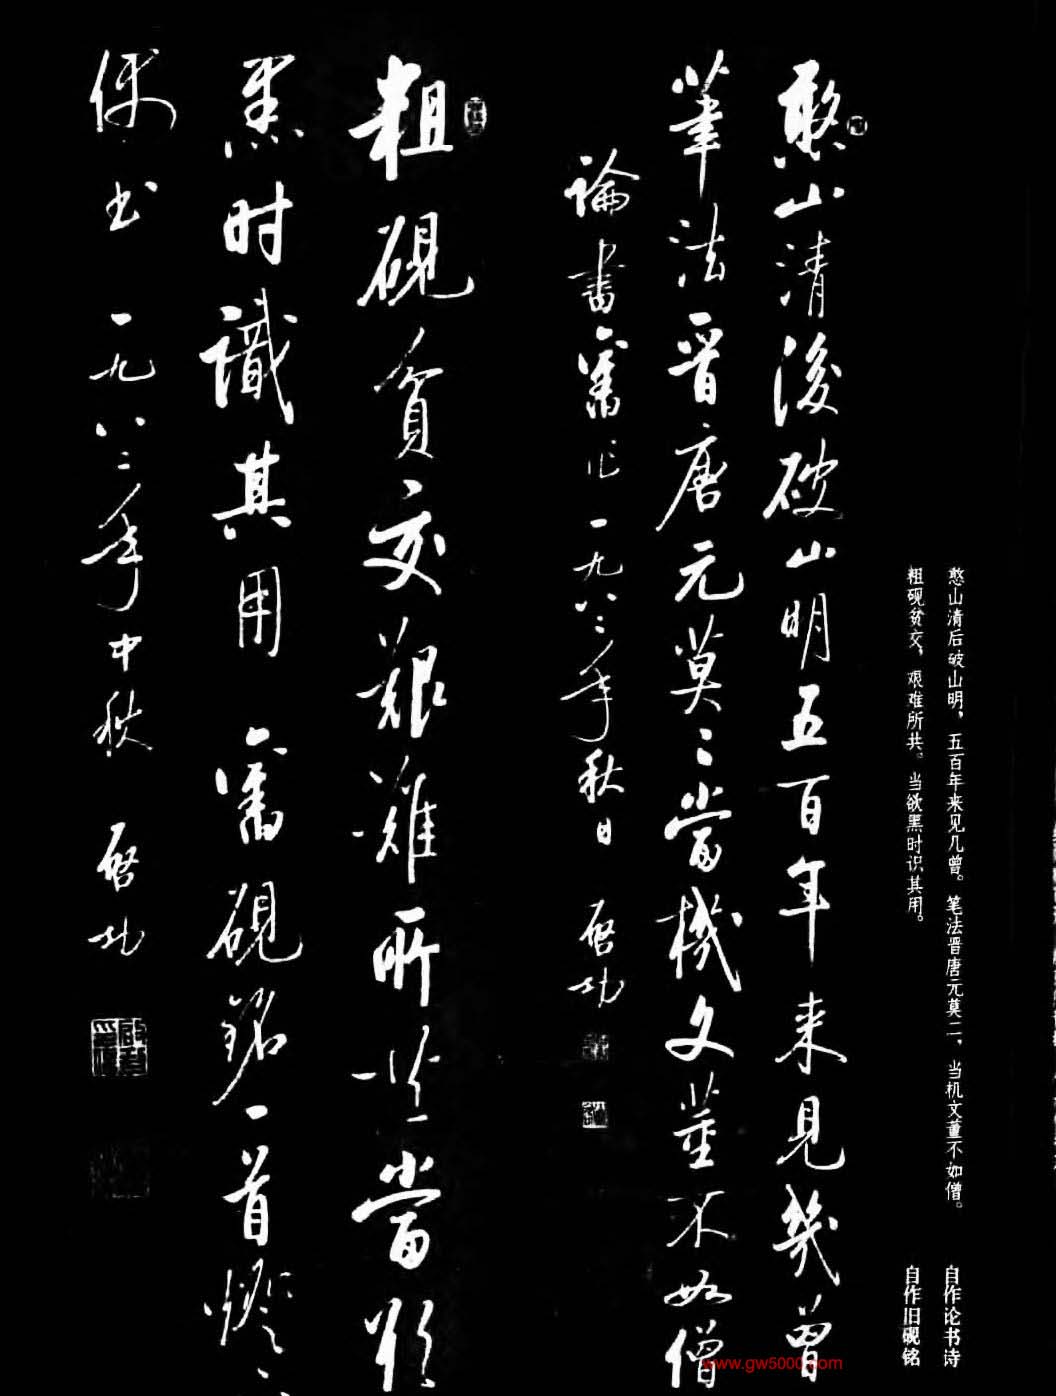 憨山清后破山明，五百年来见几曾。笔法晋唐元莫二、当机文董不如僧。 自作论书诗
粗砚贫交，艰难所共。当欲黑时识其用。 自作旧砚铭
憨山清後破山明五百年来見幾曾
筆法晋唐元莫二當機文董不如僧
論書舊作一九八二年秋日 啓功
粗硯貧交艱難所共當欲
黑时識其用 舊硯銘一首燈
书 一九八二年中秋 啓功
www.gw5000.com